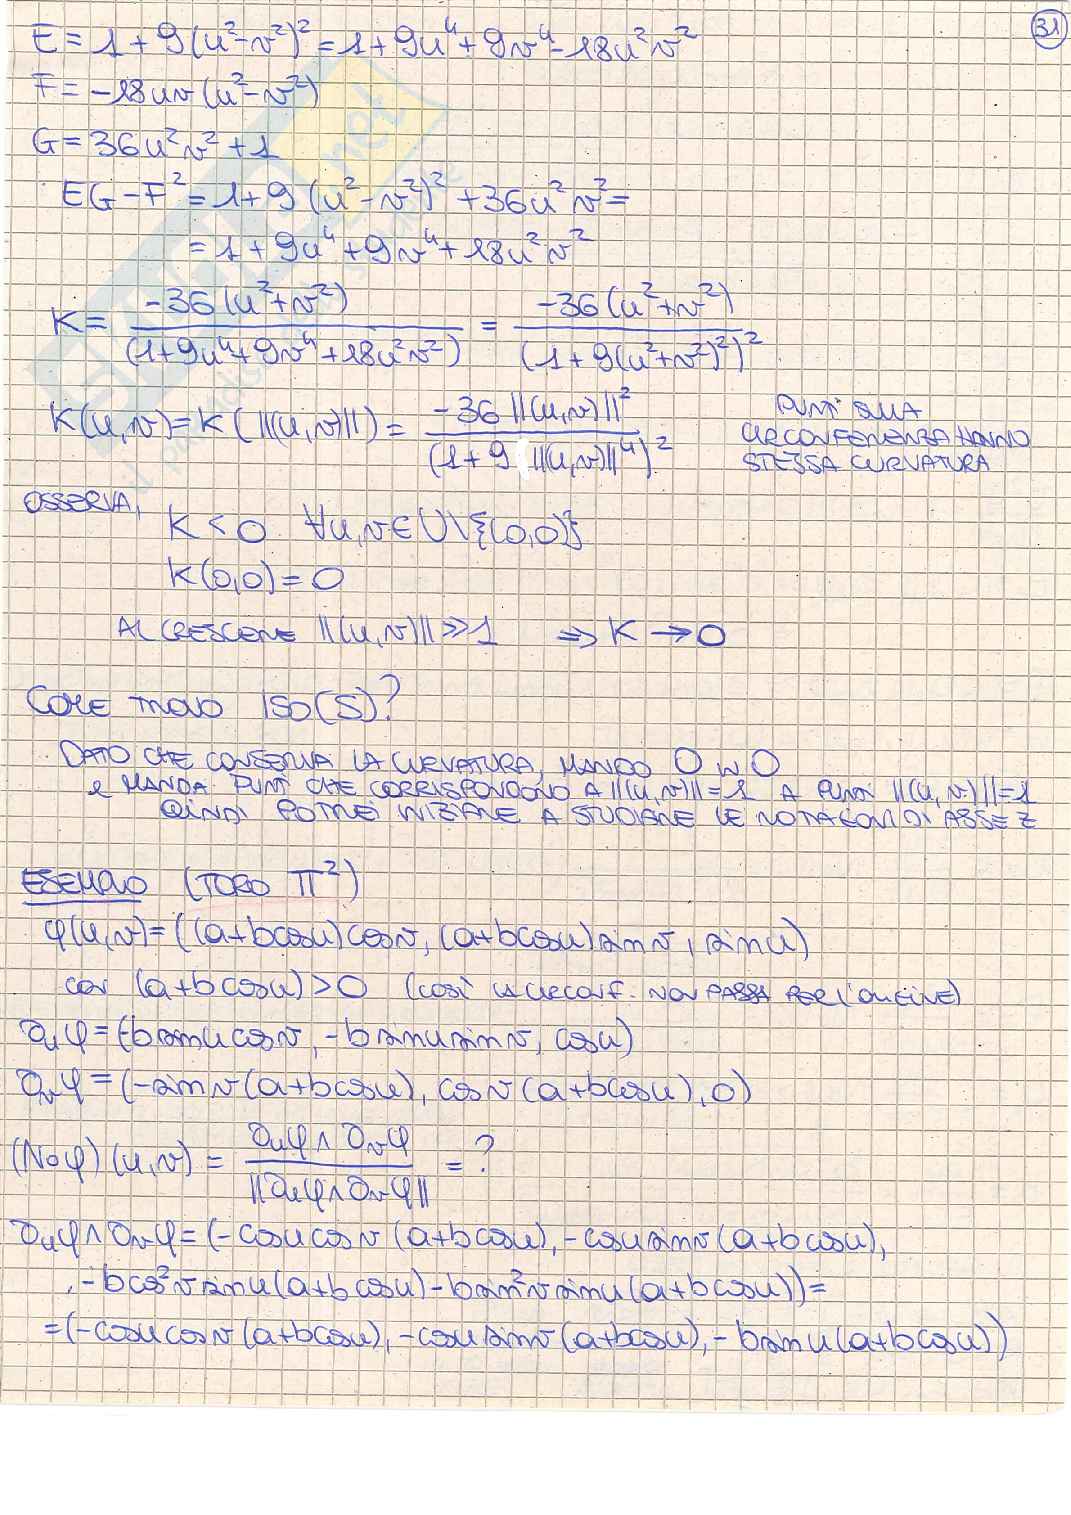 31
E = 1 + 9(u²-v²)² = 1 + 9u⁴ + 9v⁴ - 18u²v²
F = -18uv(u²-v²)
G = 36u²v² + 1
EG - F² = 1 + 9(u²-v²)² + 36u²v² =
= 1 + 9u⁴ + 9v⁴ + 18u²v²
K = -36(u²+v²) / (1+9u⁴+9v⁴+18u²v²) = -36(u²+v²) / (1+9(u²+v²)²)²
K(u,v) = K(||(u,v)||) = -36||(u,v)||² / (1+9 ||(u,v)||⁴)²
PUNTI SULLA
CIRCONFERENZA HANNO
STESSA CURVATURA
OSSERVA,
K < 0 ∀u,v ∈ U\{(0,0)}
K(0,0) = 0
AL CRESCERE ||(u,v)|| >> 1 ⇒ K → 0
COME TROVO ISO(S)?
DATO CHE CONSERVA LA CURVATURA, MANDO O IN O
e MANDA PUNTI CHE CORRISPONDONO A ||(u,v)||=1 A PUNTI ||(u,v)||=1
QUINDI POTREI INIZIARE A STUDIARE LE ROTAZIONI DI ASSE Z
ESEMPIO (TORO Π²)
φ(u,v) = ((a+bcosu)cosv, (a+bcosu)sinv, sinu)
con (a+bcosu) > 0 (così la circonf. NON PASSA PER L'ORIGINE)
∂uφ = (-bsinu cosv, -bsinu sinv, cosu)
∂vφ = (-sinv(a+bcosu), cosv(a+bcosu), 0)
(N∘φ)(u,v) = ∂uφ ∧ ∂vφ / ||∂uφ ∧ ∂vφ|| = ?
∂uφ ∧ ∂vφ = (-cosu cosv (a+bcosu), -cosu sinv (a+bcosu),
, -bcos²v sinu(a+bcosu) - bsin²v sinu(a+bcosu)) =
= (-cosu cosv (a+bcosu), -cosu sinv (a+bcosu), -bsinu(a+bcosu))